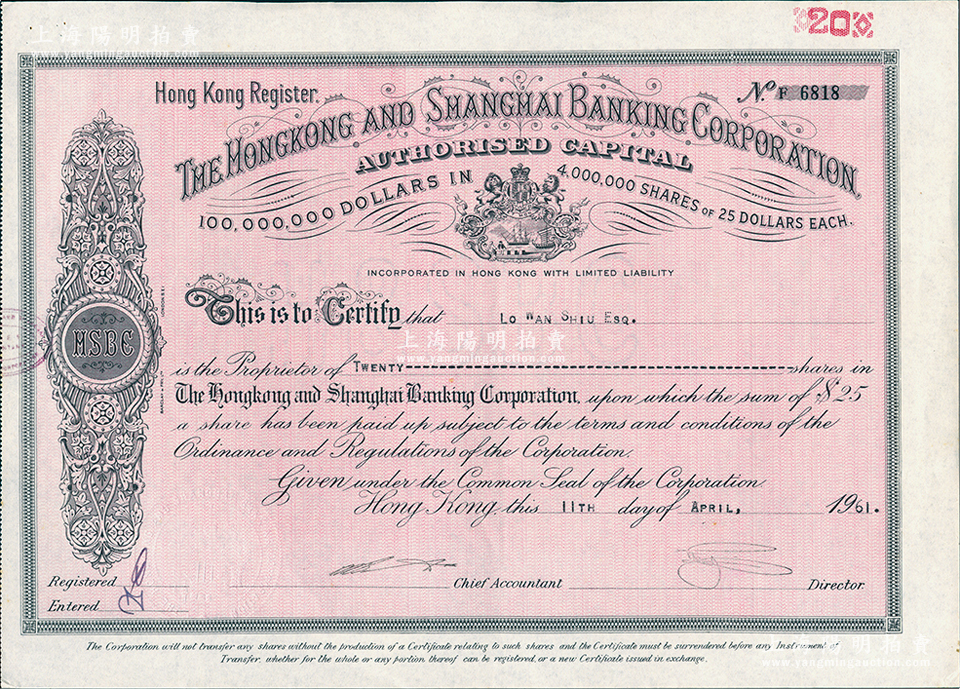 上海陽明拍賣
20
Hong Kong Register.
No. F 6818
THE HONGKONG AND SHANGHAI BANKING CORPORATION.
AUTHORISED CAPITAL
100,000,000 DOLLARS IN 4,000,000 SHARES OF 25 DOLLARS EACH.
INCORPORATED IN HONG KONG WITH LIMITED LIABILITY
This is to Certify that LO WAN SHIU ESQ.
HSBC
上海陽明拍賣
www.yangmingauction.com
is the Proprietor of TWENTY shares in
The Hongkong and Shanghai Banking Corporation, upon which the sum of $25
a share has been paid up subject to the terms and conditions of the
Ordinance and Regulations of the Corporation.
Given under the Common Seal of the Corporation
Hong Kong this 11TH day of APRIL, 1961.
Registered
Chief Accountant
Director.
Entered
The Corporation will not transfer any shares without the production of a Certificate relating to such shares and the Certificate must be surrendered before any Instrument of
Transfer, whether for the whole or any portion thereof can be registered, or a new Certificate issued in exchange.
上海陽明拍賣
www.yangmingauction.com